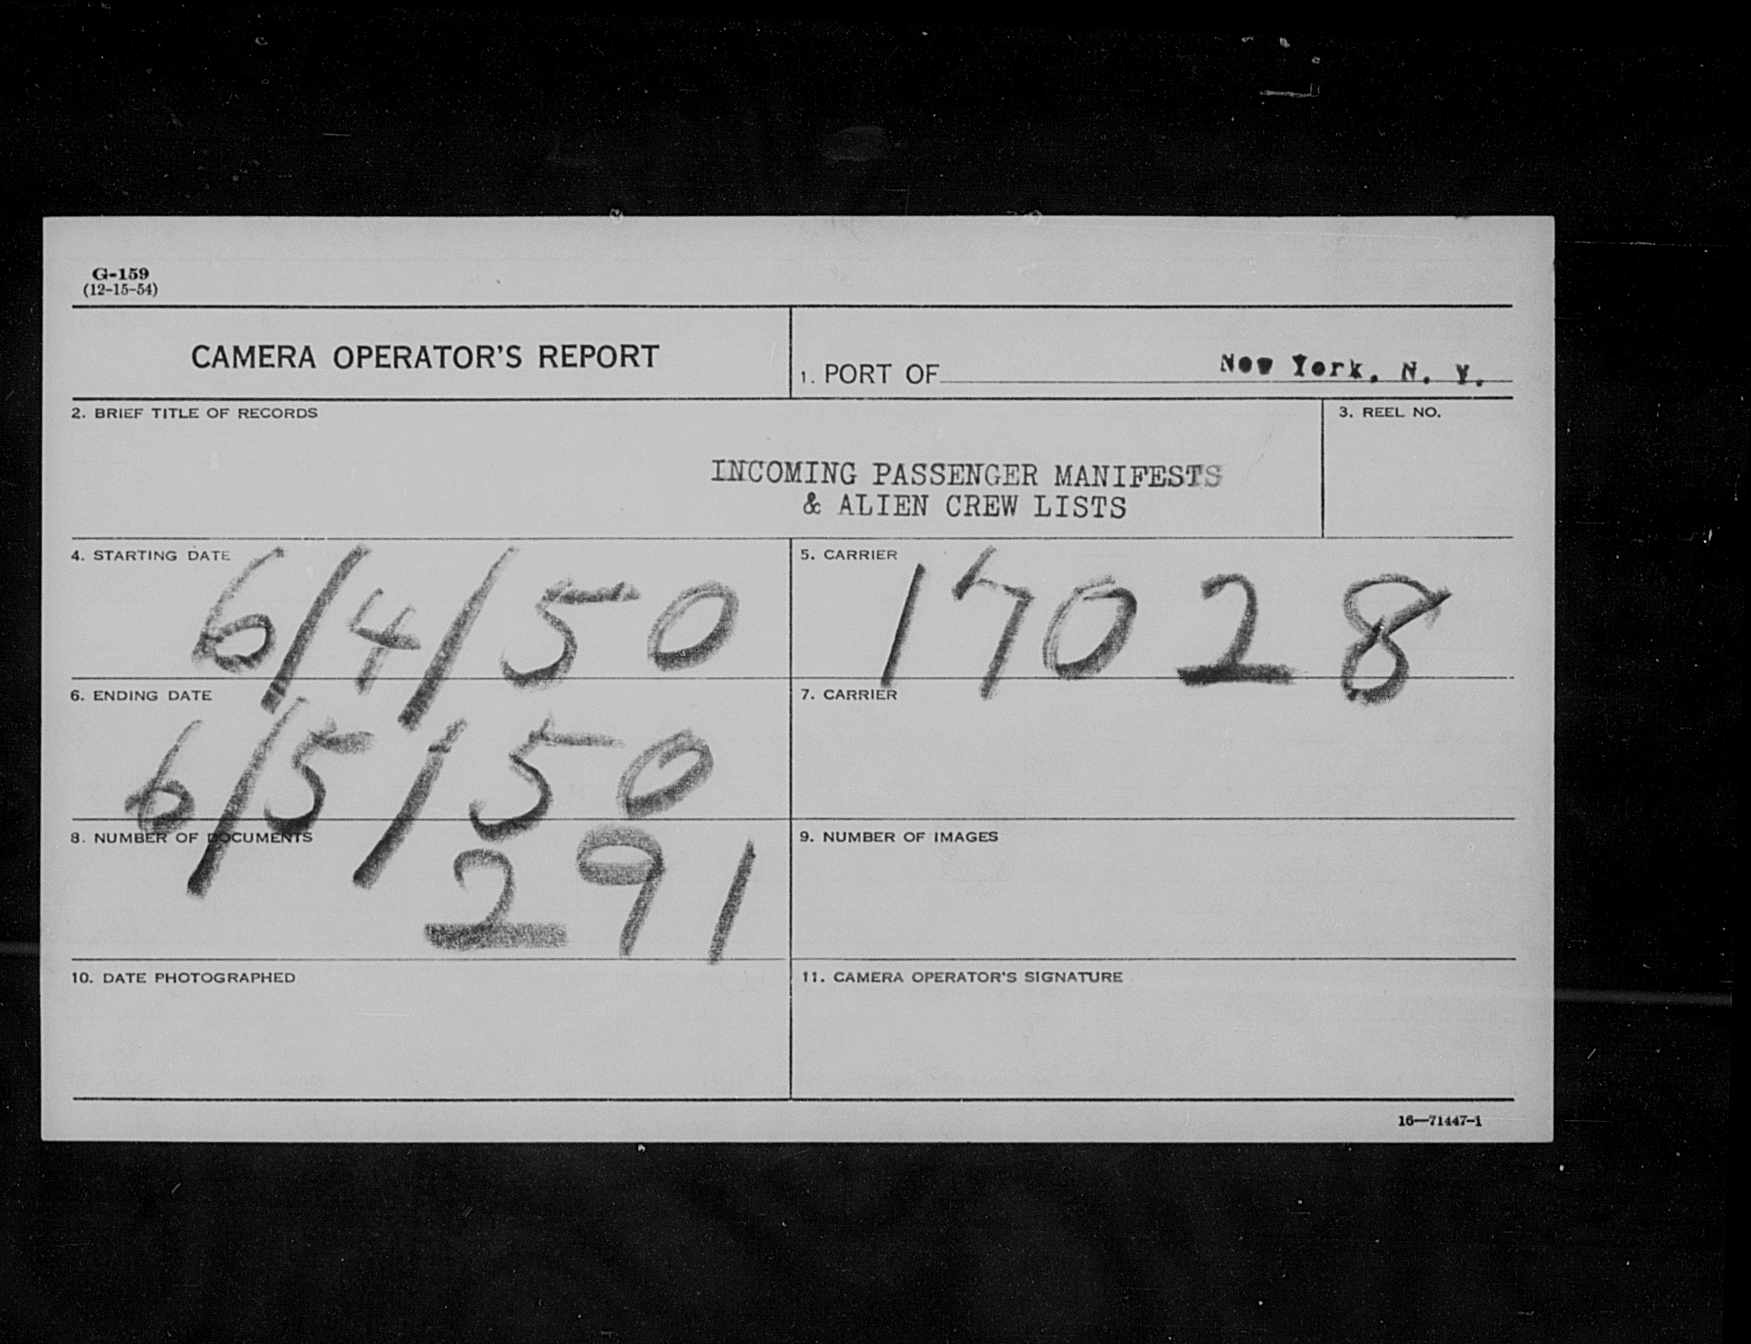 G-159
(12-15-54)
CAMERA OPERATOR'S REPORT
1. PORT OF New York, N. Y.
2. BRIEF TITLE OF RECORDS
3. REEL NO.
INCOMING PASSENGER MANIFESTS
& ALIEN CREW LISTS
4. STARTING DATE
6/4/50
5. CARRIER
17028
6. ENDING DATE
6/5/50
7. CARRIER
8. NUMBER OF DOCUMENTS
291
9. NUMBER OF IMAGES
10. DATE PHOTOGRAPHED
11. CAMERA OPERATOR'S SIGNATURE
16—71447-1